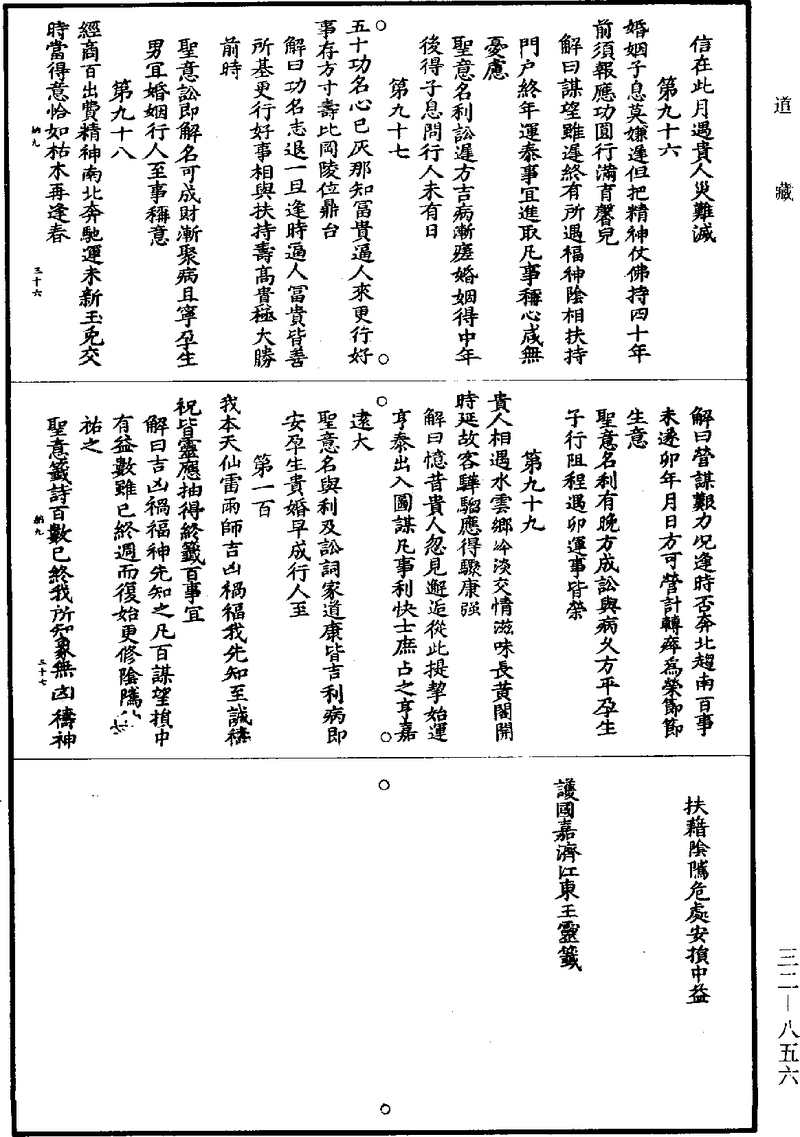 道藏
信在此月遇貴人災難滅
第九十六
婚姻子息莫嫌遲但把精神仗佛持四十年
前須報應功圓行滿育馨兒
解曰謀望雖遲終有所遇福神陰相扶持
門户終年運泰事宜進取凡事稱心咸無
憂慮
聖意名利訟遲方吉病漸瘥婚姻得中年
後得子息問行人未有日
第九十七
五十功名心已灰那知富貴逼人來更行好
事存方寸壽比岡陵位鼎台
解曰功名志退一旦逢時逼人富貴皆善
所基更行好事相與扶持壽高貴極大勝
前時
聖意訟即解名可成財漸聚病且寧孕生
男宜婚姻行人至事稱意
第九十八
經商百出費精神南北奔馳運未新玉兔交
時當得意恰如枯木再逢春
納九
三十六
解曰營謀艱力況逢時否奔北趨南百事
未遂卯年月日方可營計轉瘁為榮節節
生意
聖意名利有晚方成訟與病久方平孕生
子行阻程遇卯運事皆榮
第九十九
貴人相遇水雲鄉冷淡交情滋味長黃閣開
時延故客驊騮應得驟康强
解曰憶昔貴人忽見邂逅從此提挈始運
亨泰出入圖謀凡事利快士庶占之亨嘉
逺大
聖意名與利及訟詞家道康皆吉利病即
安孕生貴婚早成行人至
第一百
我本天仙雷雨師吉凶禍福我先知至誠禱
祝皆靈應抽得終籤百事宜
解曰吉凶禍福神先知之凡百謀望損中
有益數雖已終週而復始更修陰隲
祐之
聖意籤詩百數已終我所知象無凶禱神
納九
三十七
扶藉陰隲危處安損中益
護國嘉濟江東王靈籤
三二—八五六